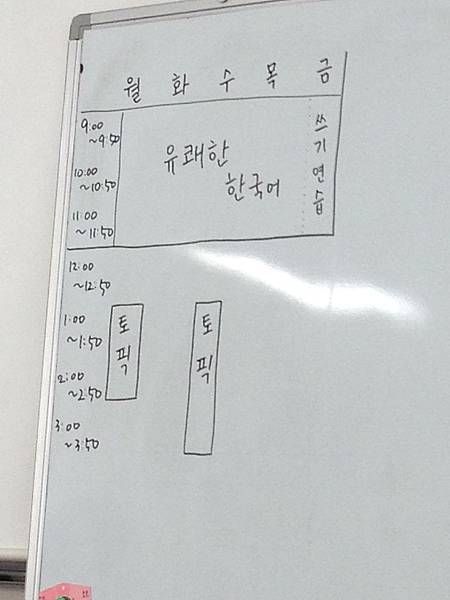 월 화 수 목 금
9:00
~9:50
10:00
~10:50
11:00
~11:50
유쾌한
한국어
쓰기연습
12:00
~12:50
1:00
~1:50
2:00
~2:50
3:00
~3:50
토픽
토픽